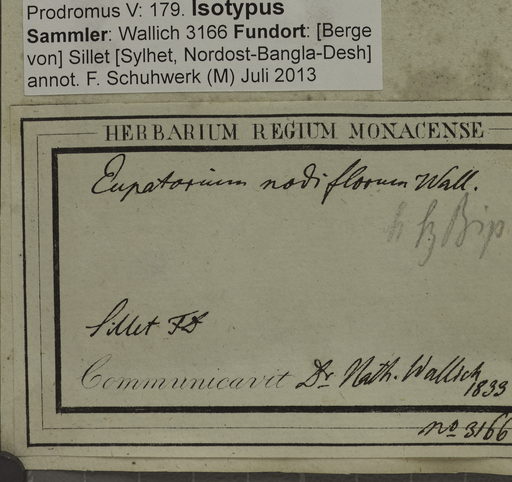 Prodromus V: 179. Isotypus
Sammler: Wallich 3166 Fundort: [Berge
von] Sillet [Sylhet, Nordost-Bangla-Desh]
annot. F. Schuhwerk (M) Juli 2013
HERBARIUM REGIUM MONACENSE
Eupatorium nodiflorum Wall.
h Sz Bip
Sillet FD
Communicavit Dr Nath. Wallich
1833
no 3166